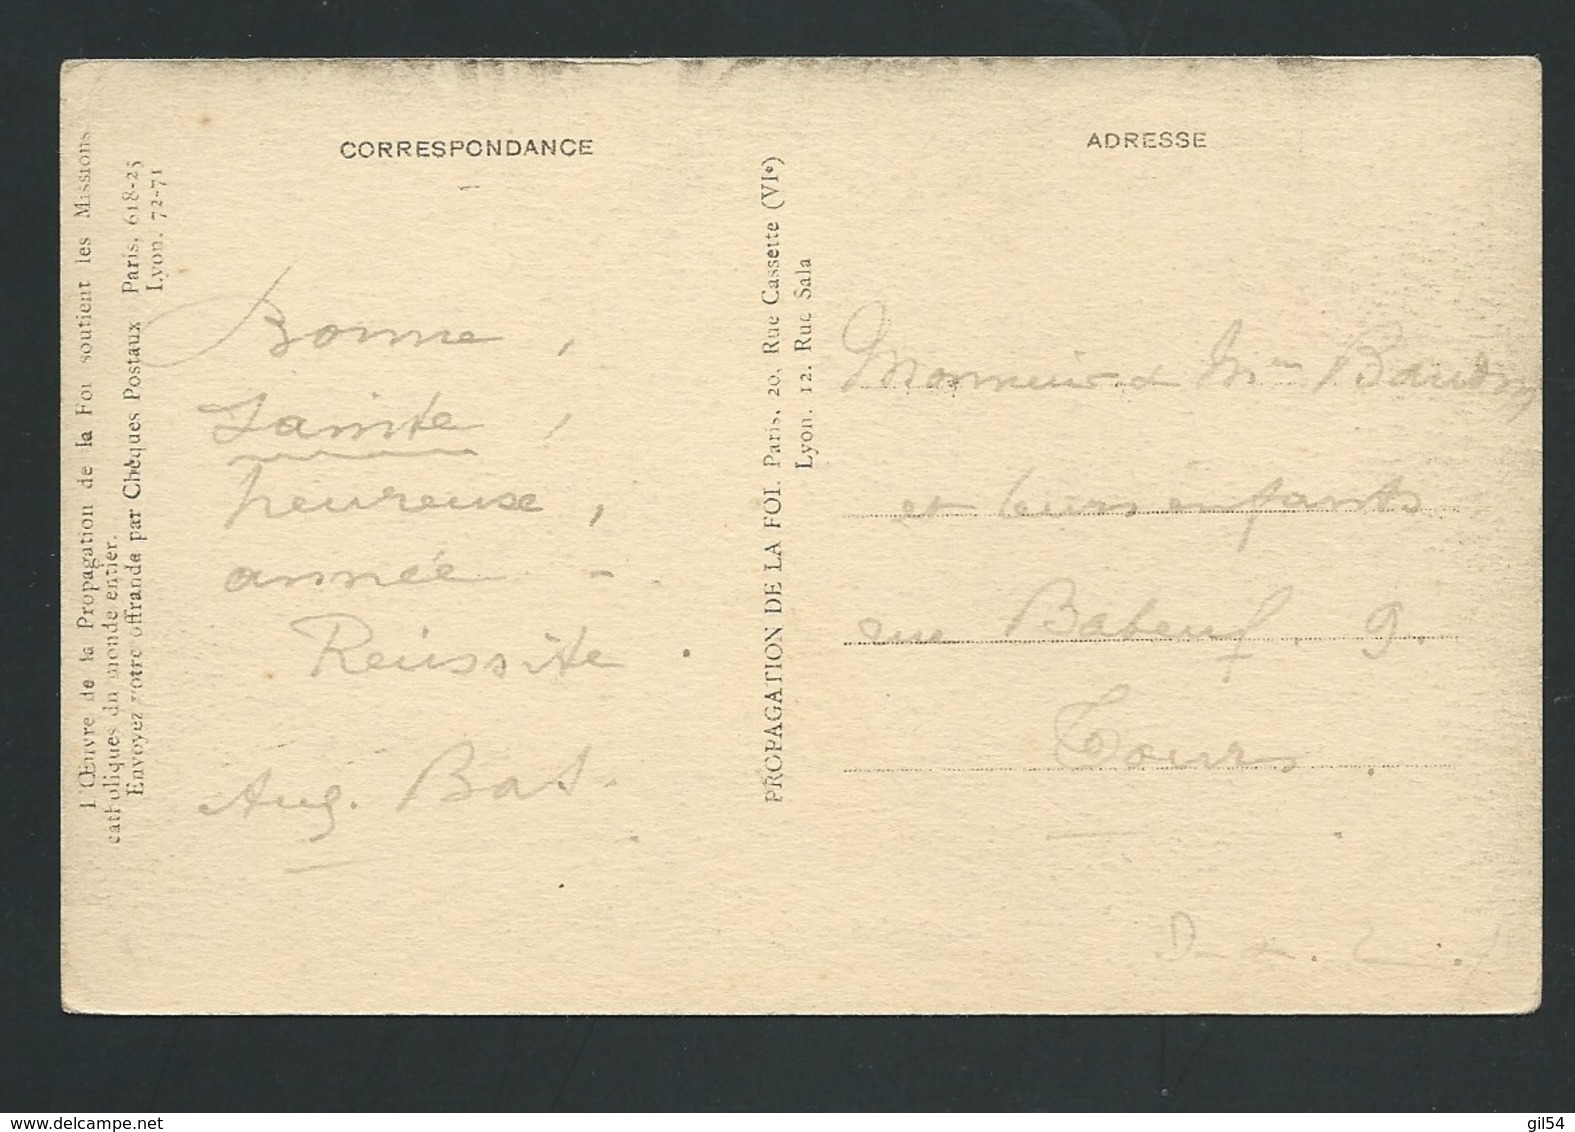 CORRESPONDANCE
Bonne,
Sainte,
heureuse,
année -
Réussite.
Aug. Bas.
L'Œuvre de la Propagation de la Foi soutient les Missions
catholiques du monde entier.
Envoyez votre offrande par Chèques Postaux Paris, 618-25
Lyon. 72-71
PROPAGATION DE LA FOI. Paris, 20, Rue Cassette (VIe)
Lyon. 12. Rue Sala
ADRESSE
Monsieur & Mme Baudry
et leurs enfants
rue Babeuf. 9.
Tours.
gil54